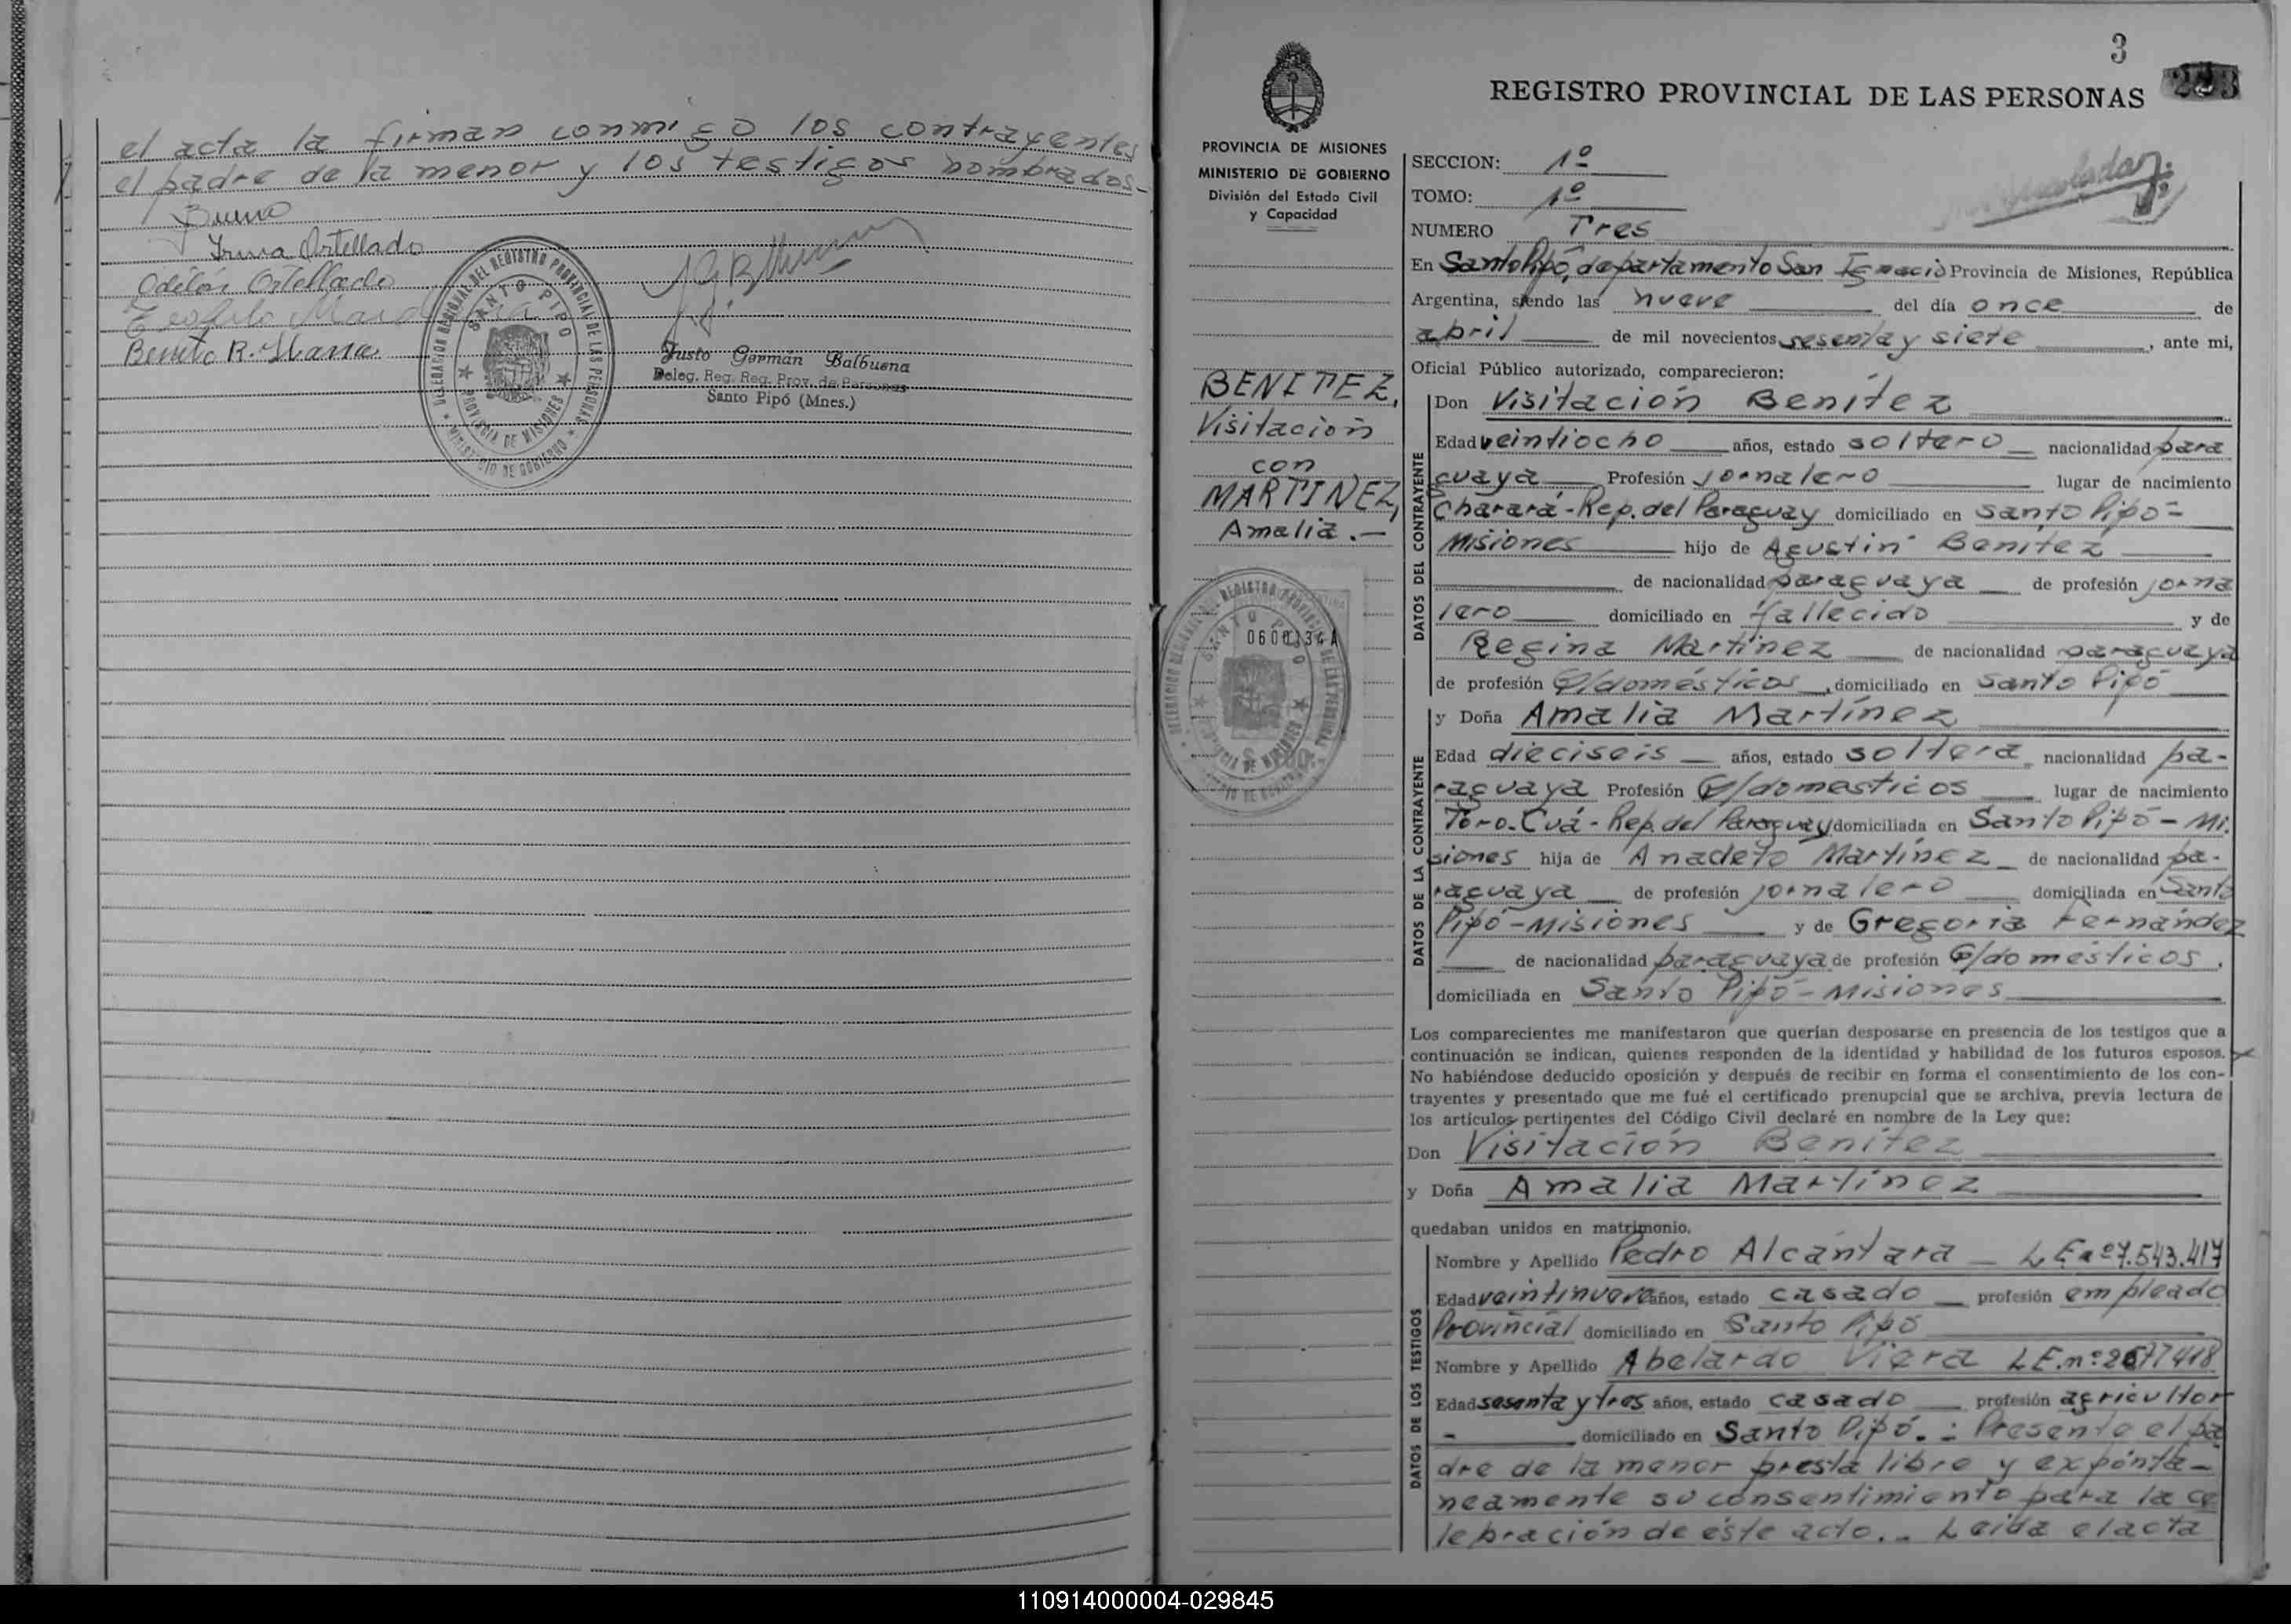 el acta la firman conmigo los contrayentes
el padre de la menor y los testigos nombrados.-
Bueno
Irma Ortellado
Odilón Ortellado
Teofilo
Benito R.
DELEGACION REGIONAL DEL REGISTRO PROVINCIAL DE LAS PERSONAS
SANTO PIPO
PROVINCIA DE MISIONES
MINISTERIO DE GOBIERNO
Justo Germán Balbuena
Deleg. Reg. Reg. Prov. de Personas
Santo Pipó (Mnes.)
3
REGISTRO PROVINCIAL DE LAS PERSONAS
PROVINCIA DE MISIONES
MINISTERIO DE GOBIERNO
División del Estado Civil
y Capacidad
SECCION: 1º
TOMO: 1º
NUMERO Tres
En Santo Pipó, departamento San Ignacio Provincia de Misiones, República
Argentina, siendo las nueve del día once de
abril de mil novecientos sesenta y siete, ante mi,
Oficial Público autorizado, comparecieron:
BENITEZ,
Visitación
con
MARTINEZ,
Amalia.-
0600134A
DATOS DEL CONTRAYENTE
Don Visitación Benítez
Edad veintiocho años, estado soltero nacionalidad para
guaya Profesión jornalero lugar de nacimiento
Charará-Rep. del Paraguay domiciliado en Santo Pipó-
Misiones hijo de Agustín Benítez
de nacionalidad paraguaya de profesión jorna
lero domiciliado en fallecido y de
Regina Martínez de nacionalidad paraguaya
de profesión Q/domésticos, domiciliado en Santo Pipó
DATOS DE LA CONTRAYENTE
y Doña Amalia Martínez
Edad dieciseis años, estado soltera nacionalidad pa-
raguaya Profesión Q/domesticos lugar de nacimiento
Toro-Cuá-Rep. del Paraguay domiciliada en Santo Pipó-Mi.
siones hija de Anacleto Martínez de nacionalidad pa-
raguaya de profesión jornalero domiciliada en Santo
Pipó-Misiones y de Gregoria Fernández
de nacionalidad paraguaya de profesión Q/domésticos.
domiciliada en Santo Pipó-Misiones
Los comparecientes me manifestaron que querían desposarse en presencia de los testigos que a
continuación se indican, quienes responden de la identidad y habilidad de los futuros esposos.
No habiéndose deducido oposición y después de recibir en forma el consentimiento de los con-
trayentes y presentado que me fué el certificado prenupcial que se archiva, previa lectura de
los artículos pertinentes del Código Civil declaré en nombre de la Ley que:
Don Visitación Benítez
y Doña Amalia Martínez
quedaban unidos en matrimonio.
DATOS DE LOS TESTIGOS
Nombre y Apellido Pedro Alcántara - L.E nº 7.543.417
Edad veintinueve años, estado casado profesión empleado
Provincial domiciliado en Santo Pipó
Nombre y Apellido Abelardo Viera L.E. nº 2677418
Edad sesenta y tres años, estado casado profesión agricultor
- domiciliado en Santo Pipó.: Presente el pa
dre de la menor presta libre y expónta-
neamente su consentimiento para la ce
lebración de éste acto.- Leida el acta
110914000004-029845